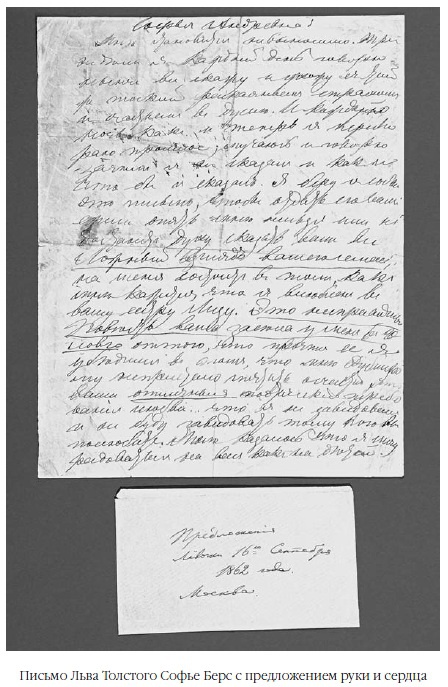 Софья Андреевна!
Мнѣ становится невыносимо. Три
недѣли я каждый день говорю
нынче все скажу и ухожу съ той
же тоской раскаяніемъ страхомъ
и счастьемъ въ душѣ. И каждую
ночь какъ и теперь я переби
раю прошлое, мучаюсь и говорю
зачѣмъ я не сказалъ и какъ и
что бы я сказалъ. Я беру съ собою
это письмо, чтобы отдать его вамъ
ежели опять мнѣ нельзя или не
достанетъ духу сказать вамъ все
Ложный взглядъ вашего семейс
на меня состоитъ въ томъ какъ
мнѣ кажется что я влюбленъ въ
вашу сестру Лизу. Это несправедливо
Повѣсть ваша засѣла у меня въ го
ловѣ оттого, что прочтя ее я
убѣдился въ что мнѣ Дублицко
му не пристало мечтать о счастьи, что
ваши отличныя поэтическія требо
ванія любви... что я не завидовалъ
и не буду завидовать тому кого вы
полюбите. Мнѣ казалось что я могу
радоваться на васъ какъ на дѣтей.
Предложенія
Лёвочки 16го Сентября
1862 года.
Москва.
Письмо Льва Толстого Софье Берс с предложением руки и сердца